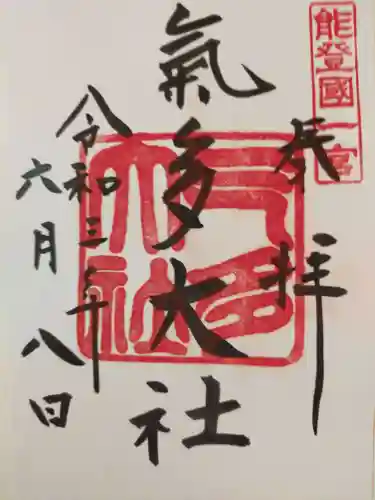 能登國一宮
奉拝
氣多大社
令和三年
六月八日
气多
大社